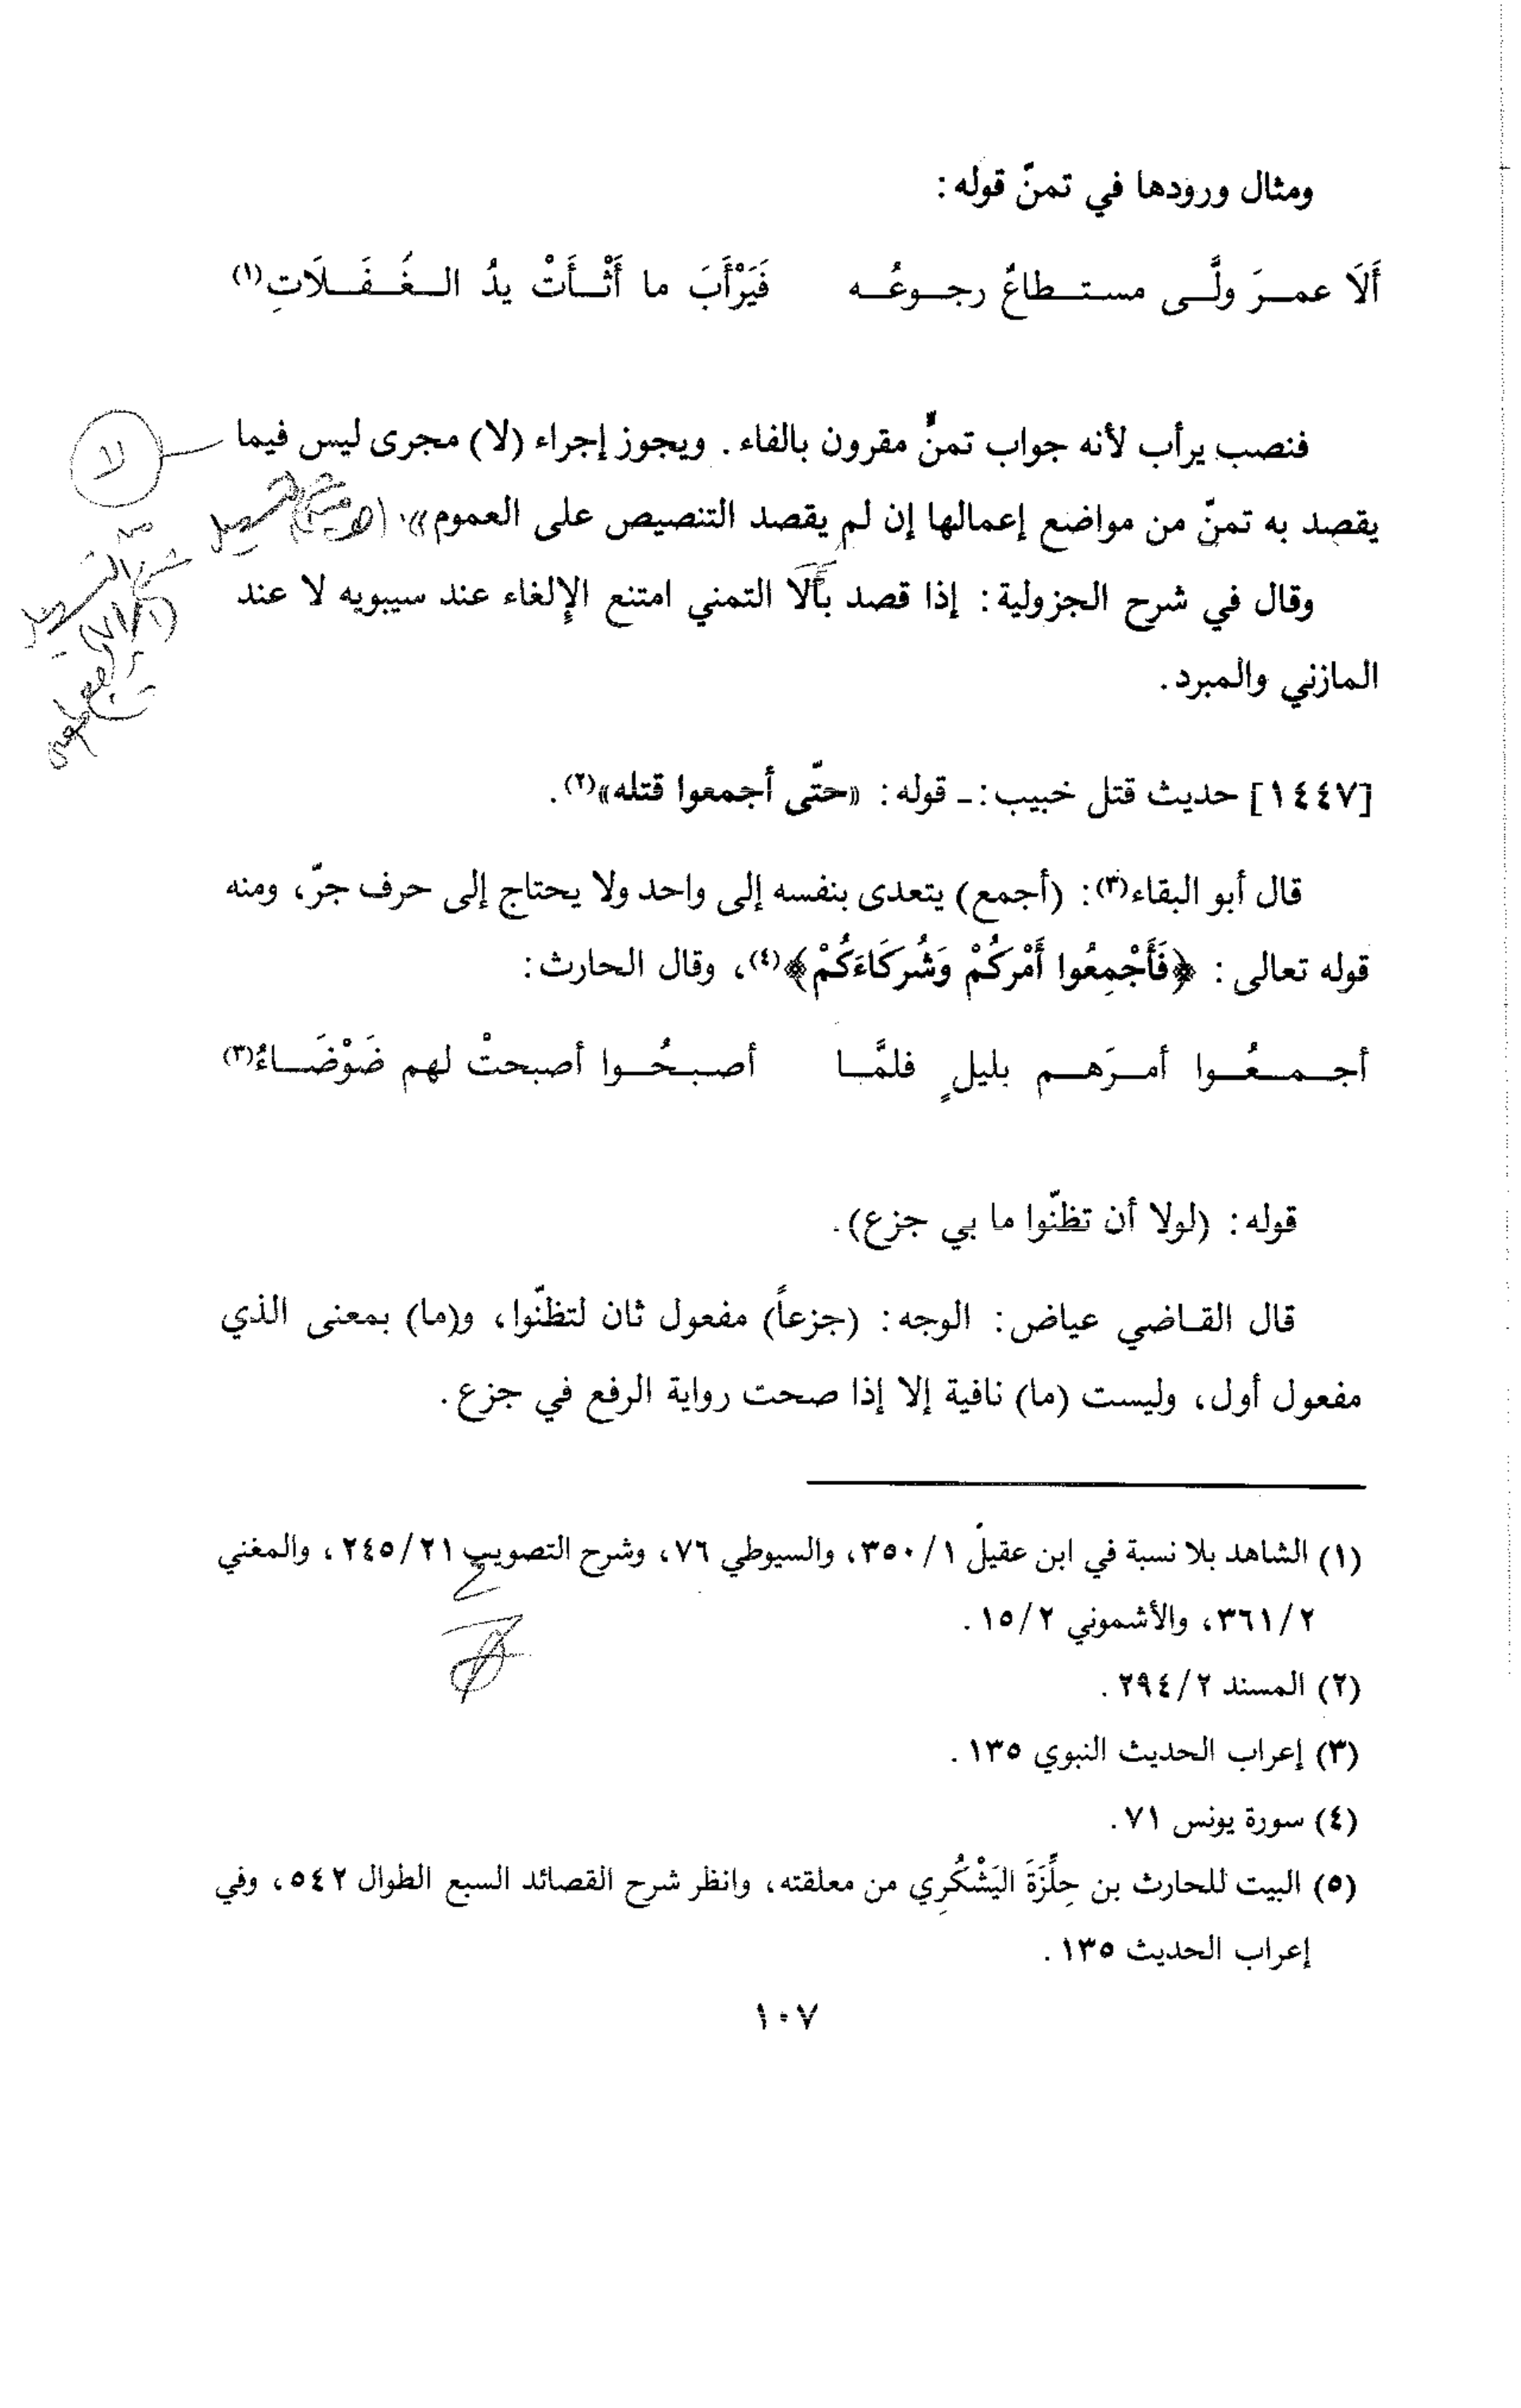 ومثال ورودها في تمنّ قوله:
أَلَا عمـرَ ولَّـى مستـطاعٌ رجـوعُـه فَيَرْأَبَ ما أَثْـأَتْ يدُ الـغَـفَـلَاتِ(١)
فنصب يرأب لأنه جواب تمنٍّ مقرون بالفاء. ويجوز إجراء (لا) مجرى ليس فيما
لا
يقصد به تمنّ من مواضع إعمالها إن لم يقصد التنصيص على العموم».
وقال في شرح الجزولية: إذا قصد بأَلَا التمني امتنع الإلغاء عند سيبويه لا عند
المازني والمبرد.
[١٤٤٧] حديث قتل خبيب: ـ قوله: «حتّى أجمعوا قتله»(٢).
قال أبو البقاء(٣): (أجمع) يتعدى بنفسه إلى واحد ولا يحتاج إلى حرف جرّ، ومنه
قوله تعالى: ﴿فَأَجْمِعُوا أَمْرَكُمْ وَشُرَكَاءَكُمْ﴾(٤)، وقال الحارث:
أجـمـعُـوا أمـرَهـم بليلٍ فلمَّـا أصـبـحُـوا أصبحتْ لهم ضَوْضَـاءُ(٣)
قوله: (لولا أن تظنّوا ما بي جزع).
قال القاضي عياض: الوجه: (جزعاً) مفعول ثان لتظنّوا، و(ما) بمعنى الذي
مفعول أول، وليست (ما) نافية إلا إذا صحت رواية الرفع في جزع.
(١) الشاهد بلا نسبة في ابن عقيل ٣٥٠/١، والسيوطي ٧٦، وشرح التصويب ٢٤٥/٢١، والمغني
٣٦١/٢، والأشموني ١٥/٢.
(٢) المسند ٢٩٤/٢.
(٣) إعراب الحديث النبوي ١٣٥.
(٤) سورة يونس ٧١.
(٥) البيت للحارث بن حِلِّزَةَ اليَشْكُرِي من معلقته، وانظر شرح القصائد السبع الطوال ٥٤٢، وفي
إعراب الحديث ١٣٥.
١٠٧